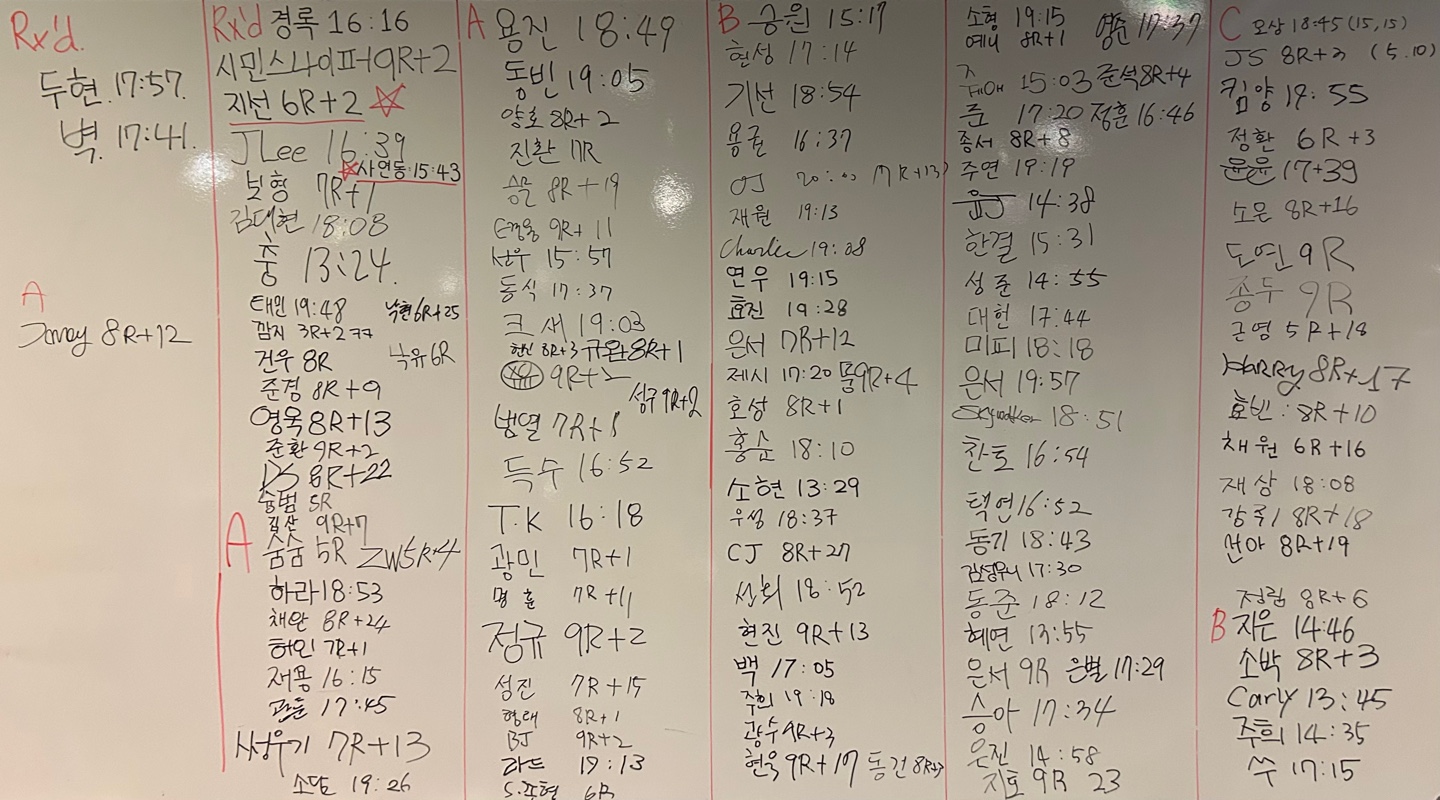 Rx'd.
두현 17:57
벽 17:41
A
8R+12
Rx'd 경록 16:16
시민스나이퍼 9R+2
지선 6R+2
JLee 16:39
사연동 15:43
보형 7R+1
김대현 18:08
충 13:24
태인 19:48 낙현 6R+25
깜지 3R+277
건우 8R 낙유 6R
준경 8R+9
영욱 8R+13
준환 9R+2
DS 8R+22
승범 5R
질산 9R+7
A 숨숨 5R ZW 5R+4
하라 18:53
채완 8R+24
하인 7R+1
재용 16:15
17:45
7R+13
소담 19:26
A 용진 18:49
동빈 19:05
양호 8R+2
진환 17R
승문 8R+19
9R+11
선우 15:57
동식 17:37
크새 19:03
현빈 8R+3 규완 8R+1
9R+2
성규 9R+2
범열 7R+1
득수 16:52
T.K 16:18
광민 7R+1
명훈 7R+11
정규 9R+2
성진 7R+15
형래 8R+1
BJ 9R+2
라드 17:13
S.주현 6R
B 승원 15:17
현성 17:14
기선 18:54
용근 16:37
OJ (7R+13)
재원 19:13
Charlie 19:08
연우 19:15
효진 19:28
은서 7R+12
제시 17:20 9R+4
호성 8R+1
홍순 18:10
소현 13:29
우성 18:37
CJ 8R+27
선희 18:52
현진 9R+13
백 17:05
주희 19:18
광수 9R+3
현욱 9R+17 동건 8R+7
소형 19:15 영준 17:37
예니 8R+1
15:03 준석 8R+4
준 17:20 정훈 16:46
종서 8R+8
주연 19:19
윤J 14:38
한결 15:31
성준 14:55
대헌 17:44
미피 18:18
은서 19:57
18:51
찬호 16:54
택연 16:52
동기 18:43
김성우니 17:30
동준 18:12
혜연 13:55
은서 9R 은별 17:29
승아 17:34
은진 14:58
지호 9R 23
C 오상 18:45 (15,15)
JS 8R+3 (5.10)
킴양 17:55
정환 6R+3
윤윤 17+39
소은 8R+16
도연 9R
종두 9R
근영 5R+18
HARRY 8R+17
효빈: 8R+10
채원 6R+16
재상 18:08
8R+18
선아 8R+19
정림 8R+6
B 지은 14:46
소박 8R+3
Carly 13:45
주희 14:35
쑤 17:15